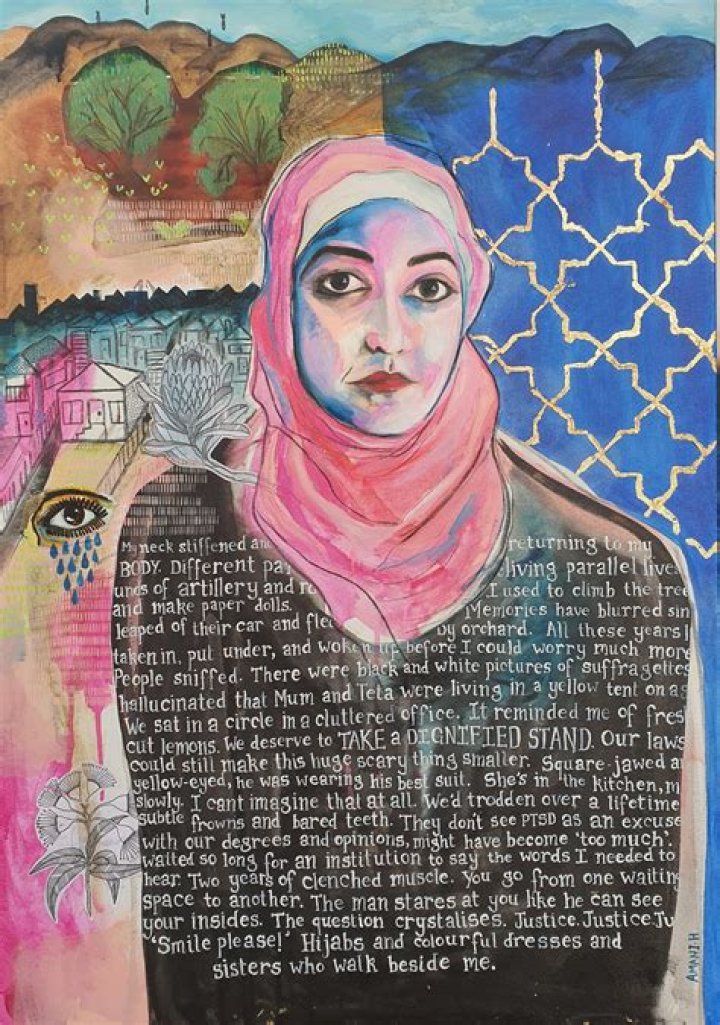 My neck stiffened an returning to my
BODY. Different pa living parallel lives
unds of artillery and r I used to climb the tree
and make paper dolls. Memories have blurred sin
leaped of their car and fle by orchard. All these years I
taken in, put under, and woken up before I could worry much more
People sniffed. There were black and white pictures of suffragettes
hallucinated that Mum and Teta were living in a yellow tent on a
We sat in a circle in a cluttered office. It reminded me of fres
cut lemons. We deserve to TAKE a DIGNIFIED STAND. Our laws
could still make this huge scary thing smaller. Square-jawed a
yellow-eyed, he was wearing his best suit. She's in the kitchen, m
slowly. I cant imagine that at all. We'd trodden over a lifetime
subtle frowns and bared teeth. They don't see PTSD as an excuse
with our degrees and opinions, might have become 'too much'.
waited so long for an institution to say the words I needed to
hear. Two years of clenched muscle. You go from one waiting
space to another. The man stares at you like he can see
your insides. The question crystalises. Justice. Justice Ju
'Smile please!' Hijabs and colourful dresses and
sisters who walk beside me.
AMANI.H